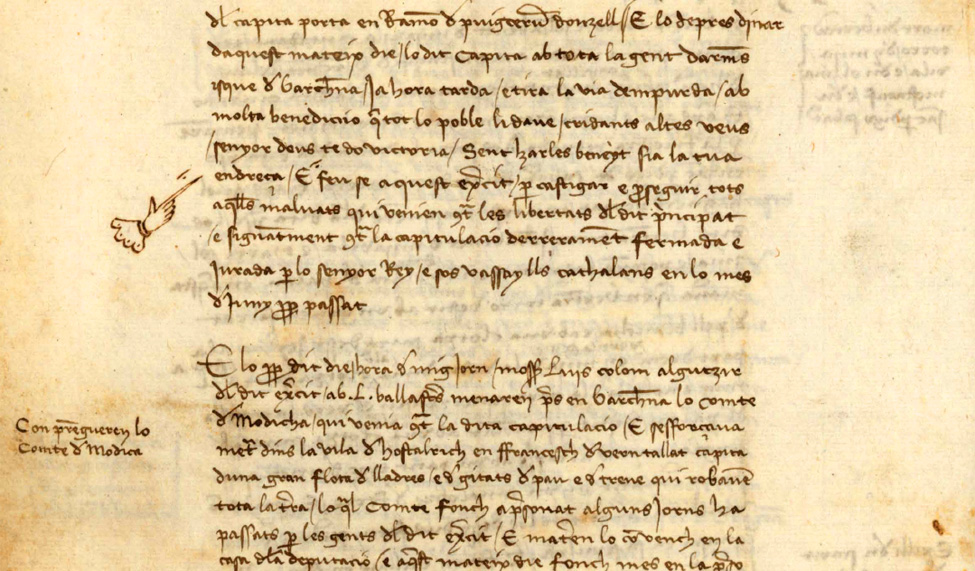 dl capita porta en Ramo d puigceru donzell / E lo depres dinar
daquest mateix die / lo dit Capita ab tota la gent darms
isque d barchna / ja hora tarda / e tira la via dempurda / ab
molta benediccio q tot lo poble li dave / cridants altes veus
/ senyor deus te do victoria / Sent Karles beneyt sia la tua
endreça / E feu se aquest exercit / p castigar e pseguir tots
aqlls malvats qui venien qt les libertats dl dit principat
/ e signatment qt la capitulacio derrerament fermada e
jurada p lo senyor Rey / e sos vassaylls cathalans en lo mes
d juny pp passat
E lo pp dit die / hora d mig jorn / moss Luis colom algutzir
dl dit exercit / ab .L. ballasts menaren ps en barchna lo Comte
d Modicha / qui venia qt la dita capitulacio / E sesforçava
metr dins la vila d hostalrich en ffrancesch d verntallat capita
duna gran flota d lladres / e d gitats d pau e d treue qui robaven
tota la tra / lo ql Comte fonch apsonat alguns jorns ha
passats p les gents dl dit exercit / E maten lo vench en la
casa dla deputacio / e aqst mateix die fonch mes en la pso
Con prengueren lo
Comte d Modica